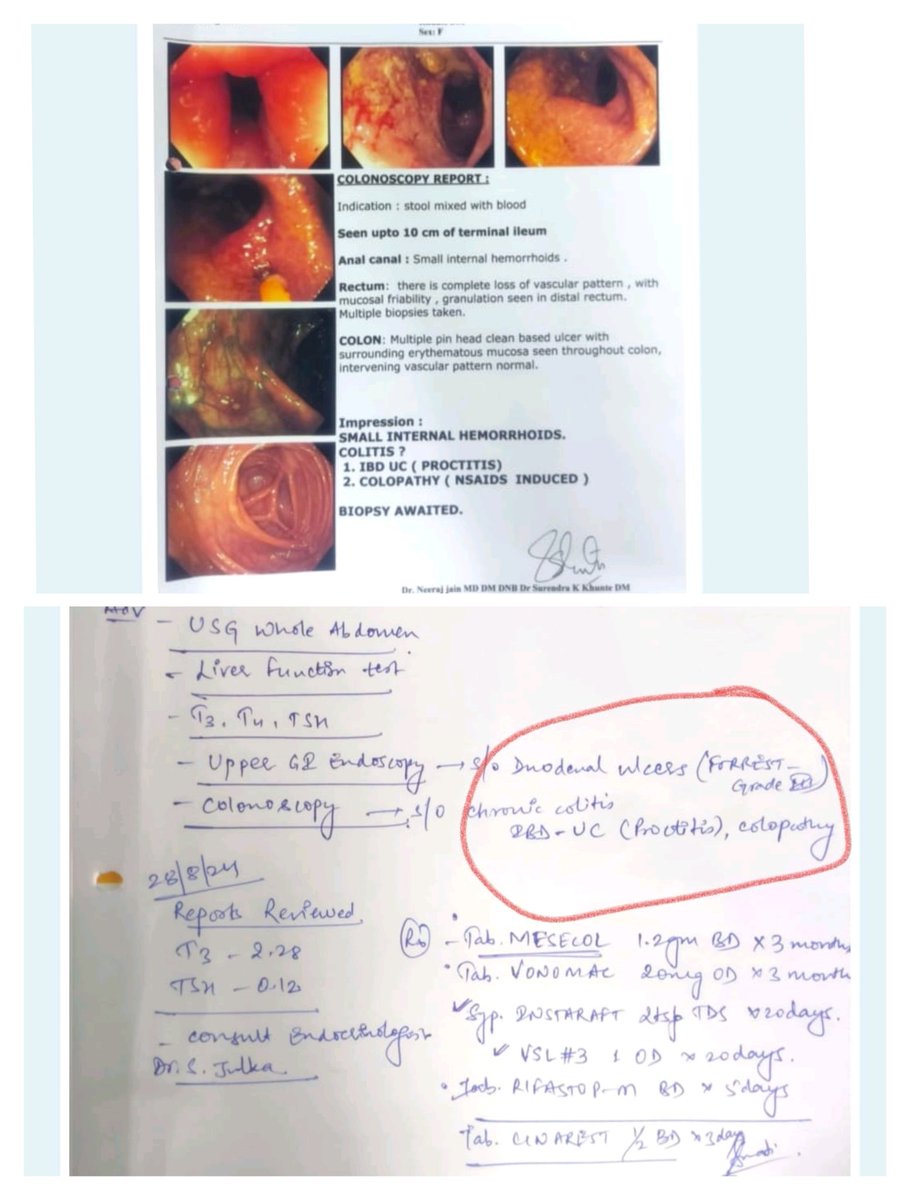 Sex: F
COLONOSCOPY REPORT :
Indication : stool mixed with blood
Seen upto 10 cm of terminal ileum
Anal canal : Small internal hemorrhoids .
Rectum: there is complete loss of vascular pattern , with
mucosal friability , granulation seen in distal rectum.
Multiple biopsies taken.
COLON: Multiple pin head clean based ulcer with
surrounding erythematous mucosa seen throughout colon,
intervening vascular pattern normal.
Impression :
SMALL INTERNAL HEMORRHOIDS.
COLITIS ?
1. IBD UC ( PROCTITIS)
2. COLOPATHY ( NSAIDS INDUCED )
BIOPSY AWAITED.
Dr. Neeraj jain MD DM DNB Dr Surendra K Khunte DM
Adv
- USG Whole Abdomen
- Liver function test
- T3, T4, TSH
- Upper GI Endoscopy → s/o Duodenal ulcers (FORREST-
Grade III)
- Colonoscopy → s/o chronic colitis
IBD-UC (Proctitis), colopathy
28/8/24
Reports Reviewed
T3 - 2.28
TSH - 0.12
- consult Endocrinologist
Dr. S. Julka
Rx
- Tab. MESECOL 1.2gm BD x 3 months
Tab. VONOMAC 20mg OD x 3 month
Syp. INSTARAFT 2tsp TDS x 20days.
VSL#3 1 OD x 20days.
RIFASTOP-M BD x 5days
Tab. CINAREST 1/2 BD x 3day